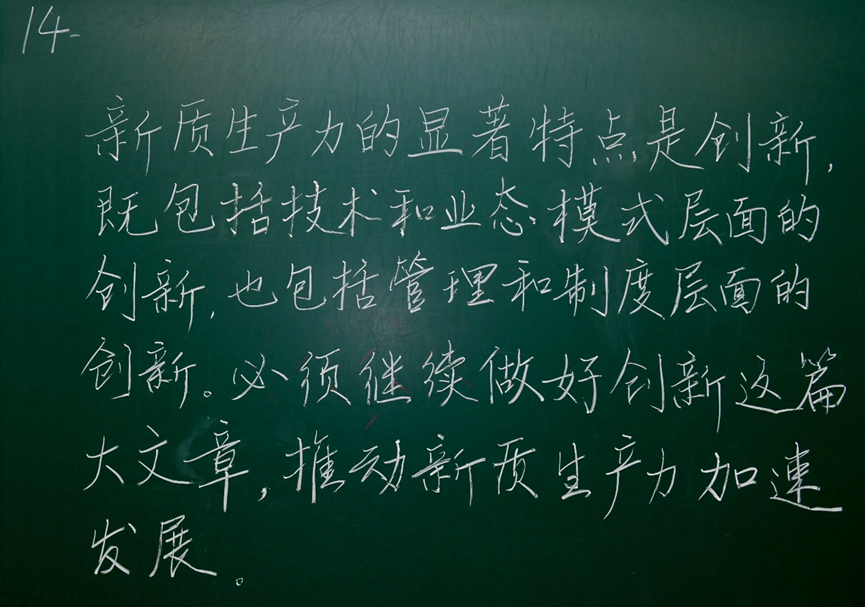 14.
新质生产力的显著特点是创新,
既包括技术和业态、模式层面的
创新,也包括管理和制度层面的
创新。必须继续做好创新这篇
大文章,推动新质生产力加速
发展。